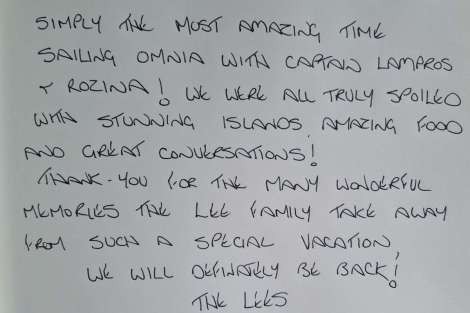 SIMPLY THE MOST AMAZING TIME
SAILING OMNIA WITH CAPTAIN LAMPROS
& ROZINA! WE WERE ALL TRULY SPOILED
WITH STUNNING ISLANDS, AMAZING FOOD
AND GREAT CONVERSATIONS!
THANK-YOU FOR THE MANY WONDERFUL
MEMORIES THE LEE FAMILY TAKE AWAY
FROM SUCH A SPECIAL VACATION,
WE WILL DEFINATELY BE BACK!
THE LEES